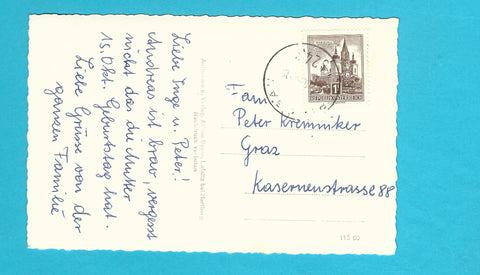 Liebe Inge u. Peter!
Andreas ist brav, vergesst
nicht das die Mutter
15. Okt. Geburtstag hat.
Liebe Grüsse von der
ganzen Familie
Fam
Peter Kremniker
Graz
Kasernenstrasse 88
REPUBLIK ÖSTERREICH
115 60